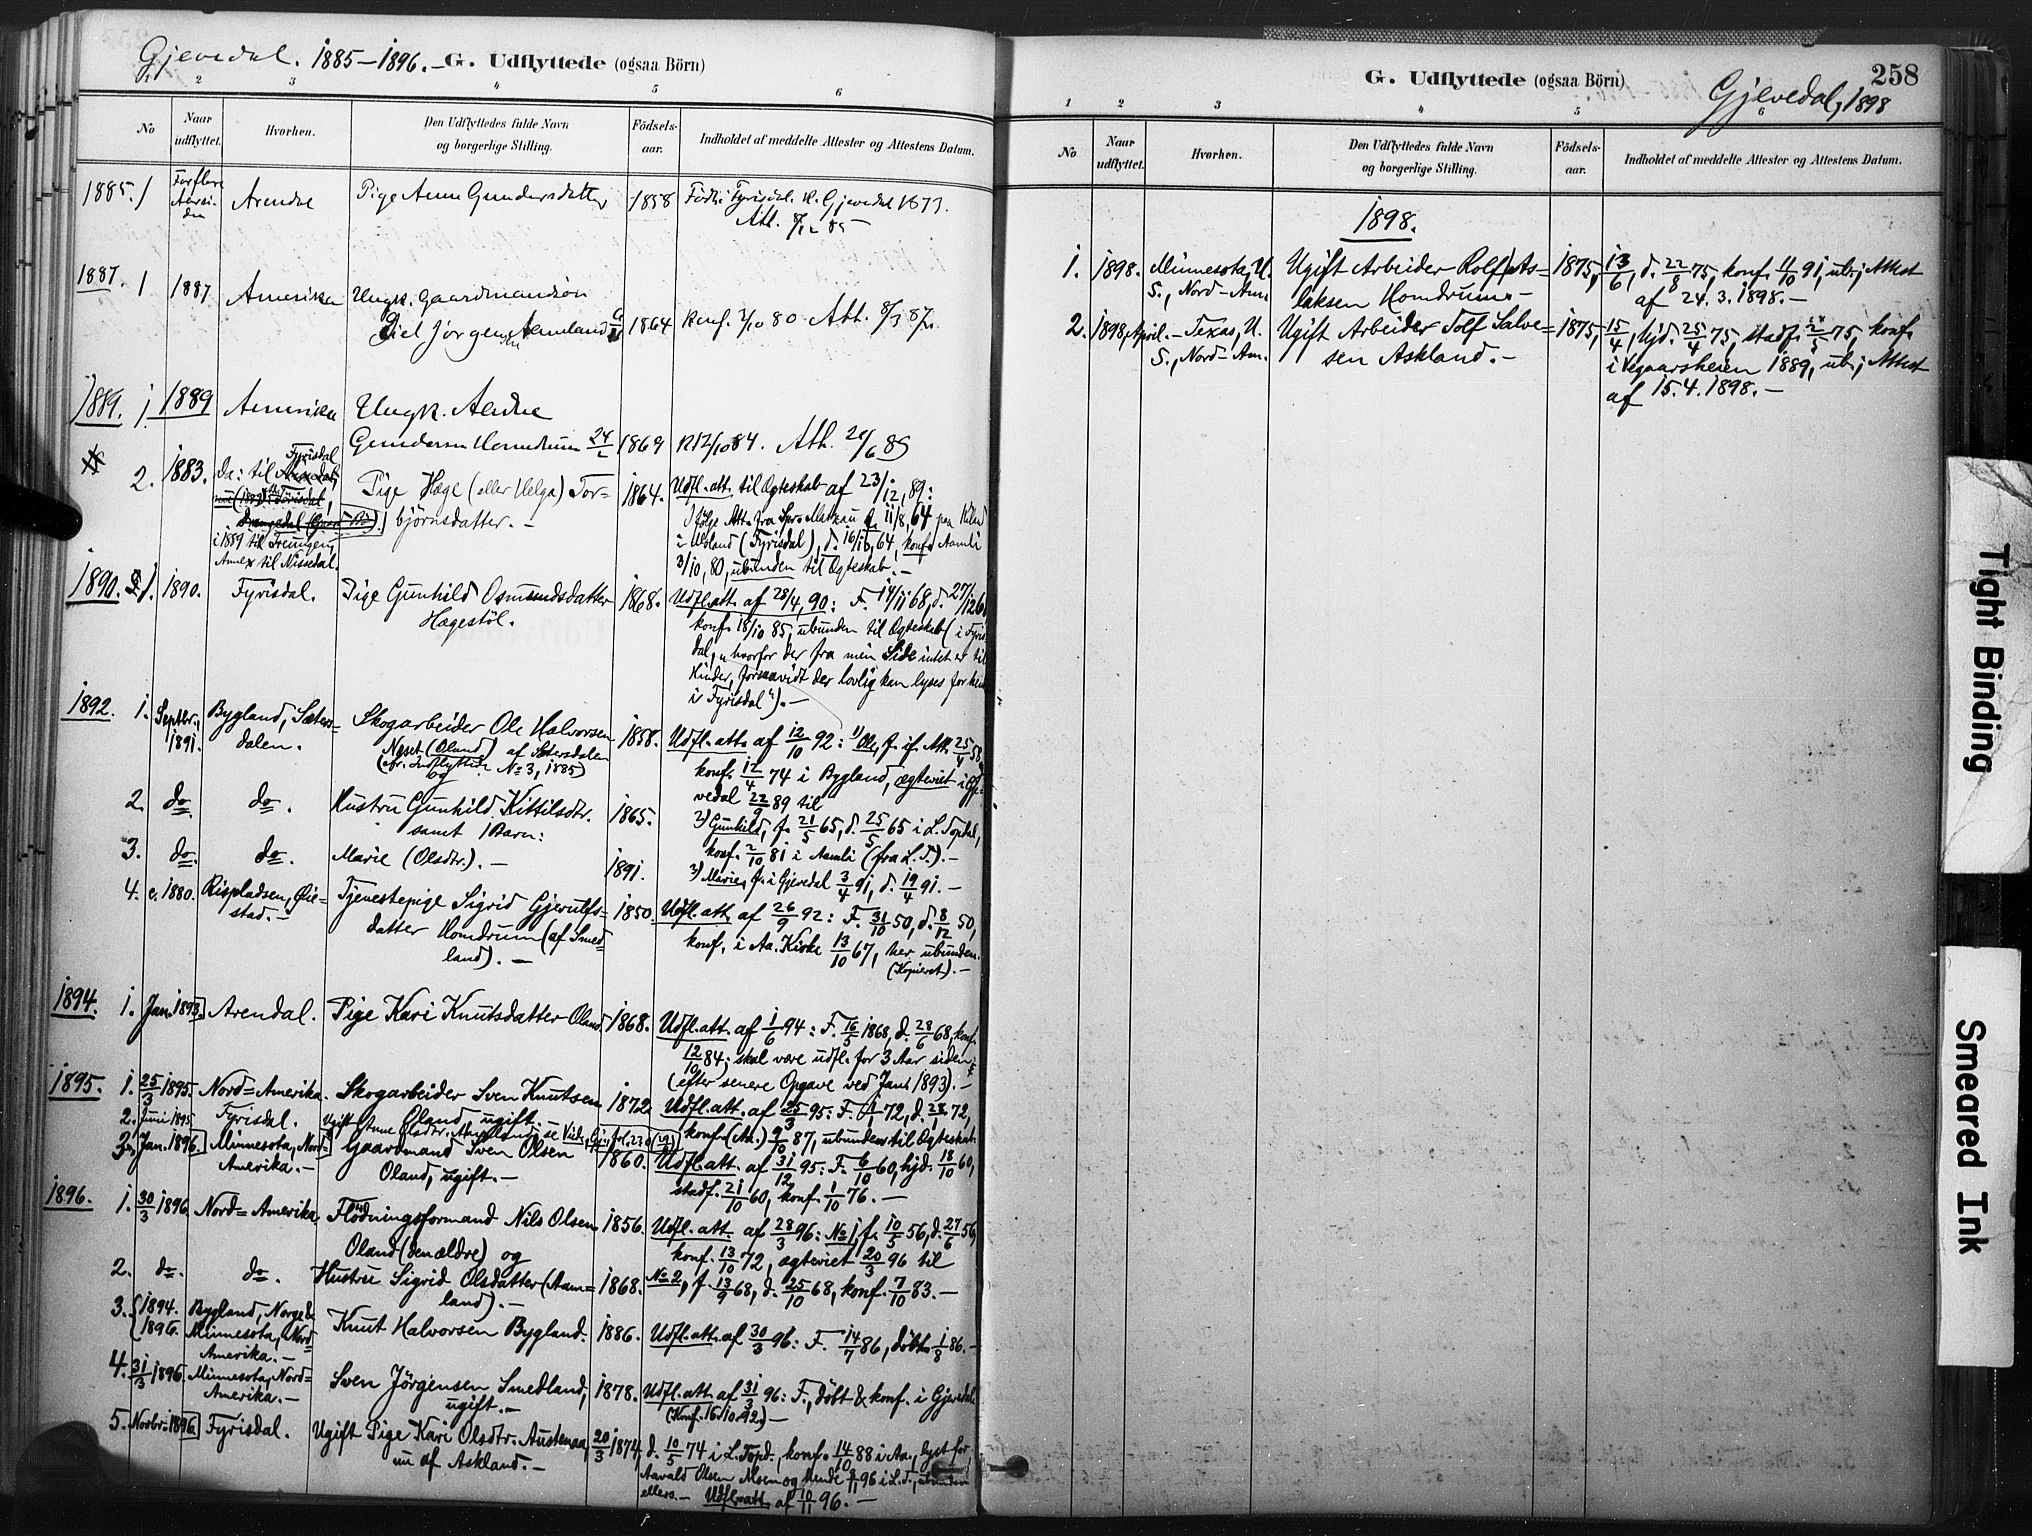 Gjevedal. 1885–1896.– G. Udflyttede (ogsaa Börn)
1 2 3 4 5 6
No
Naar udflyttet.
Hvorhen.
Den Udflyttedes fulde Navn og borgerlige Stilling.
Födsels-aar.
Indholdet af meddelte Attester og Attestens Datum.
1885. 1 For flere Aar siden Arendal Pige Anne Gundersdatter 1858 Född i Fyrisdal. K. Gjevedal 1873.
Att. 8/12 85
1887. 1 1887 Amerika Ungk. Gaardmandssön
Jörgensen Aamland 1864 Konf. 3/10 80 Att. 8/3 87.
1889. 1 1889 Amerika Ungk.
Gundersen Homdrum 24/2 1869 K 12/10 84. Att. 24/6 89
2. 1883. Da: til Fyrisdal
Pige Hæge (eller Helga) Tor= 1864. Udfl. att. til Ægteskab af 23/12, 89:
björnsdatter.–
i 1889 til Treungen,
Annex til Nissedal.
ifölge Att. fra 11/8, 64
(Fyrisdal), d. 16/10, 64, konf. Aamli
3/10, 80, ubunden til Ægteskab.–
1890. 1. 1890. Fyrisdal. Pige Gunhild Osmundsdatter 1868. Udfl. att. af 28/4, 90: F. 14/11 68, d. 27/12 6
Hægestöl.
konf. 18/10 85, ubunden til Ægteskab (i Fyris
dal, „hvorfor der fra min Side intet er til
Hinder, forsaavidt der lovlig kan lyses for hende
i Fyrisdal“).–
1892. 1. Septbr. 1891. Bygland, Sæters=dalen. Skogarbeider Ole Halvorsen 1858. Udfl. att. af 12/10 92: 1) Ole, f. if. Att. 25/4 58,
Næset (Oland) af Sætersdalen
(Nr. Indflyttede No 3, 1885)
og
konf. 12/4 74 i Bygland, ægteviet i Gje
vedal 22/9 89 til
2. do. do. Hustru Gunhild Kittilsdtr. 1865. 2) Gunhild, f. 21/5 65, d. 25/5 65 i L. Topdal,
samt 1 Barn:
konf. 2/10 81 i Aamli (fra L. T.).–
3. do. do. Marie (Olsdtr.).– 1891. 3) Marie, f. i Gjevedal 3/4 91, d. 19/4 91.–
4. c. 1880. Rispladsen, Öie=stad.– Tjenestepige Sigrid Gjerulfs= 1850. Udfl. att. af 26/9 92: F. 31/10 50, d. 8/12 50,
datter Homdrum (af Smed=
land).–
konf. i Aa. Kirke 13/10 67, her ubunden.
(Kopieret).–
1894. 1. Jan. 1893. Arendal. Pige Kari Knutsdatter Oland 1868. Udfl. att. af 1/6 94: F. 16/5 1868, d. 28/6 68, konf.
12/10 84; skal være udfl. for 3 Aar siden
(efter senere Opgave ved Jan. 1893).–
1895. 1. 25/3 1895. Nord=Amerika. Skogarbeider Sven Knutsen 1872. Udfl. att. af 25/3 95: F. 1/1 72, d. 28/1 72,
Oland, ugift.–
2. Juni 1895. Fyrisdal. Ugift Anne Olsdtr.
konf. (Aa.) 9/10 87, ubunden til Ægteskab.
3. Jan. 1896. Minnesota, Nord=Amerika.– Gaardmand Sven Olsen 1860. Udfl. att. af 31/12 95: F. 6/10 60, hjd. 18/10 60,
Oland, ugift.–
stadf. 21/10 60, konf. 1/10 76.–
1896. 1. 30/3 1896. Nord=Amerika. Flödningsformand Nils Olsen 1856. Udfl. att. af 28/3 96: No 1, f. 10/5 56, d. 27/6 56,
Oland (den ældre) og
konf. 13/10 72, ægteviet 20/3 96 til
2. do. do. Hustru Sigrid Olsdatter (Aam= 1868. No 2, f. 13/9 68, d. 25/10 68, konf. 7/10 83.–
land).–
3. 1894. Bygland, Norge &
1896. Minnesota, Nord=Amerika.– Knut Halvorsen Bygland. 1886. Udfl. att. af 30/3 96: F. 14/7 86, döbt 1/8 86.–
4. 31/3 1896. Minnesota, Nord=Amerika.– Sven Jörgensen Smedland, 1878. Udfl. att. af 31/3 96: F., döbt & konf. i Gjevedal
ugift.–
(Konf. 16.10.92.)–
5. Novbr. 1896. Fyrisdal. Ugift Pige Kari Olsdtr. Austenaa, 20/3 1874, d. 10/5 74 i L. Topd., konf. 14/10 88 i Aa., lyst for
nu af Askland.–
Aavald Olsen Moen og Hende 96 i L. T., ubunden
ellers.– Udfl. att. af 10/11 96.–
G. Udflyttede (ogsaa Börn) 258
Gjevedal, 1898
1 2 3 4 5 6
No
Naar udflyttet.
Hvorhen.
Den Udflyttedes fulde Navn og borgerlige Stilling.
Födsels-aar.
Indholdet af meddelte Attester og Attestens Datum.
1898.
1. 1898. Minnesota, U. Ugift Arbeider Rolf As= 1875, 13/6, d. 22/8 75, konf. 11/10 91, ub., Attest
S., Nord-Am. laksen Homdrum.– af 24.3.1898.–
2. 1898, April.– Texas, U. Ugift Arbeider Tolf Salve= 1875, 15/4, hjd. 25/4 75, stadf. 75, konf.
S., Nord-Am. sen Askland.– i Vegaarsheien 1889, ub., Attest
af 15.4.1898.–
Tight Binding
Smeared Ink